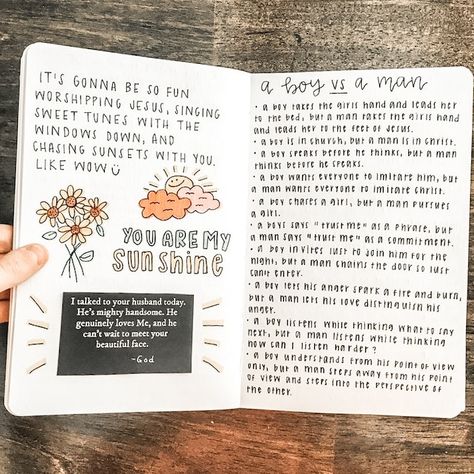 IT'S GONNA BE SO FUN
WORSHIPPING JESUS, SINGING
SWEET TUNES WITH THE
WINDOWS DOWN, AND
CHASING SUNSETS WITH YOU.
LIKE WOW
YOU ARE MY
SUNSHINE
I talked to your husband today.
He's mighty handsome. He
genuinely loves Me, and he
can't wait to meet your
beautiful face.
-God
a boy vs a man
• a boy takes the girls hand and leads her
to the bed, but a man takes the girls hand
and leads her to the feet of Jesus.
• a boy is in church, but a man is in Christ.
• a boy speaks before he thinks, but a man
thinks before he speaks.
• a boy wants everyone to imitate him, but a
man wants everyone to imitate Christ.
• a boy chases a girl, but a man pursues
a girl.
• a boys says "trust me" as a phrase, but
a man says "trust me" as a commitment.
• a boy invites lust to join him for the
night, but a man chains the door so lust
cant enter.
• a boy lets his anger spark a fire and burn,
but a man lets his love distinguish his
anger.
• a boy listens while thinking what to say
next, but a man listens while thinking
how can I listen harder?
• a boy understands from his point of view
only, but a man steps away from his point
of view and steps into the perspective of
the other.